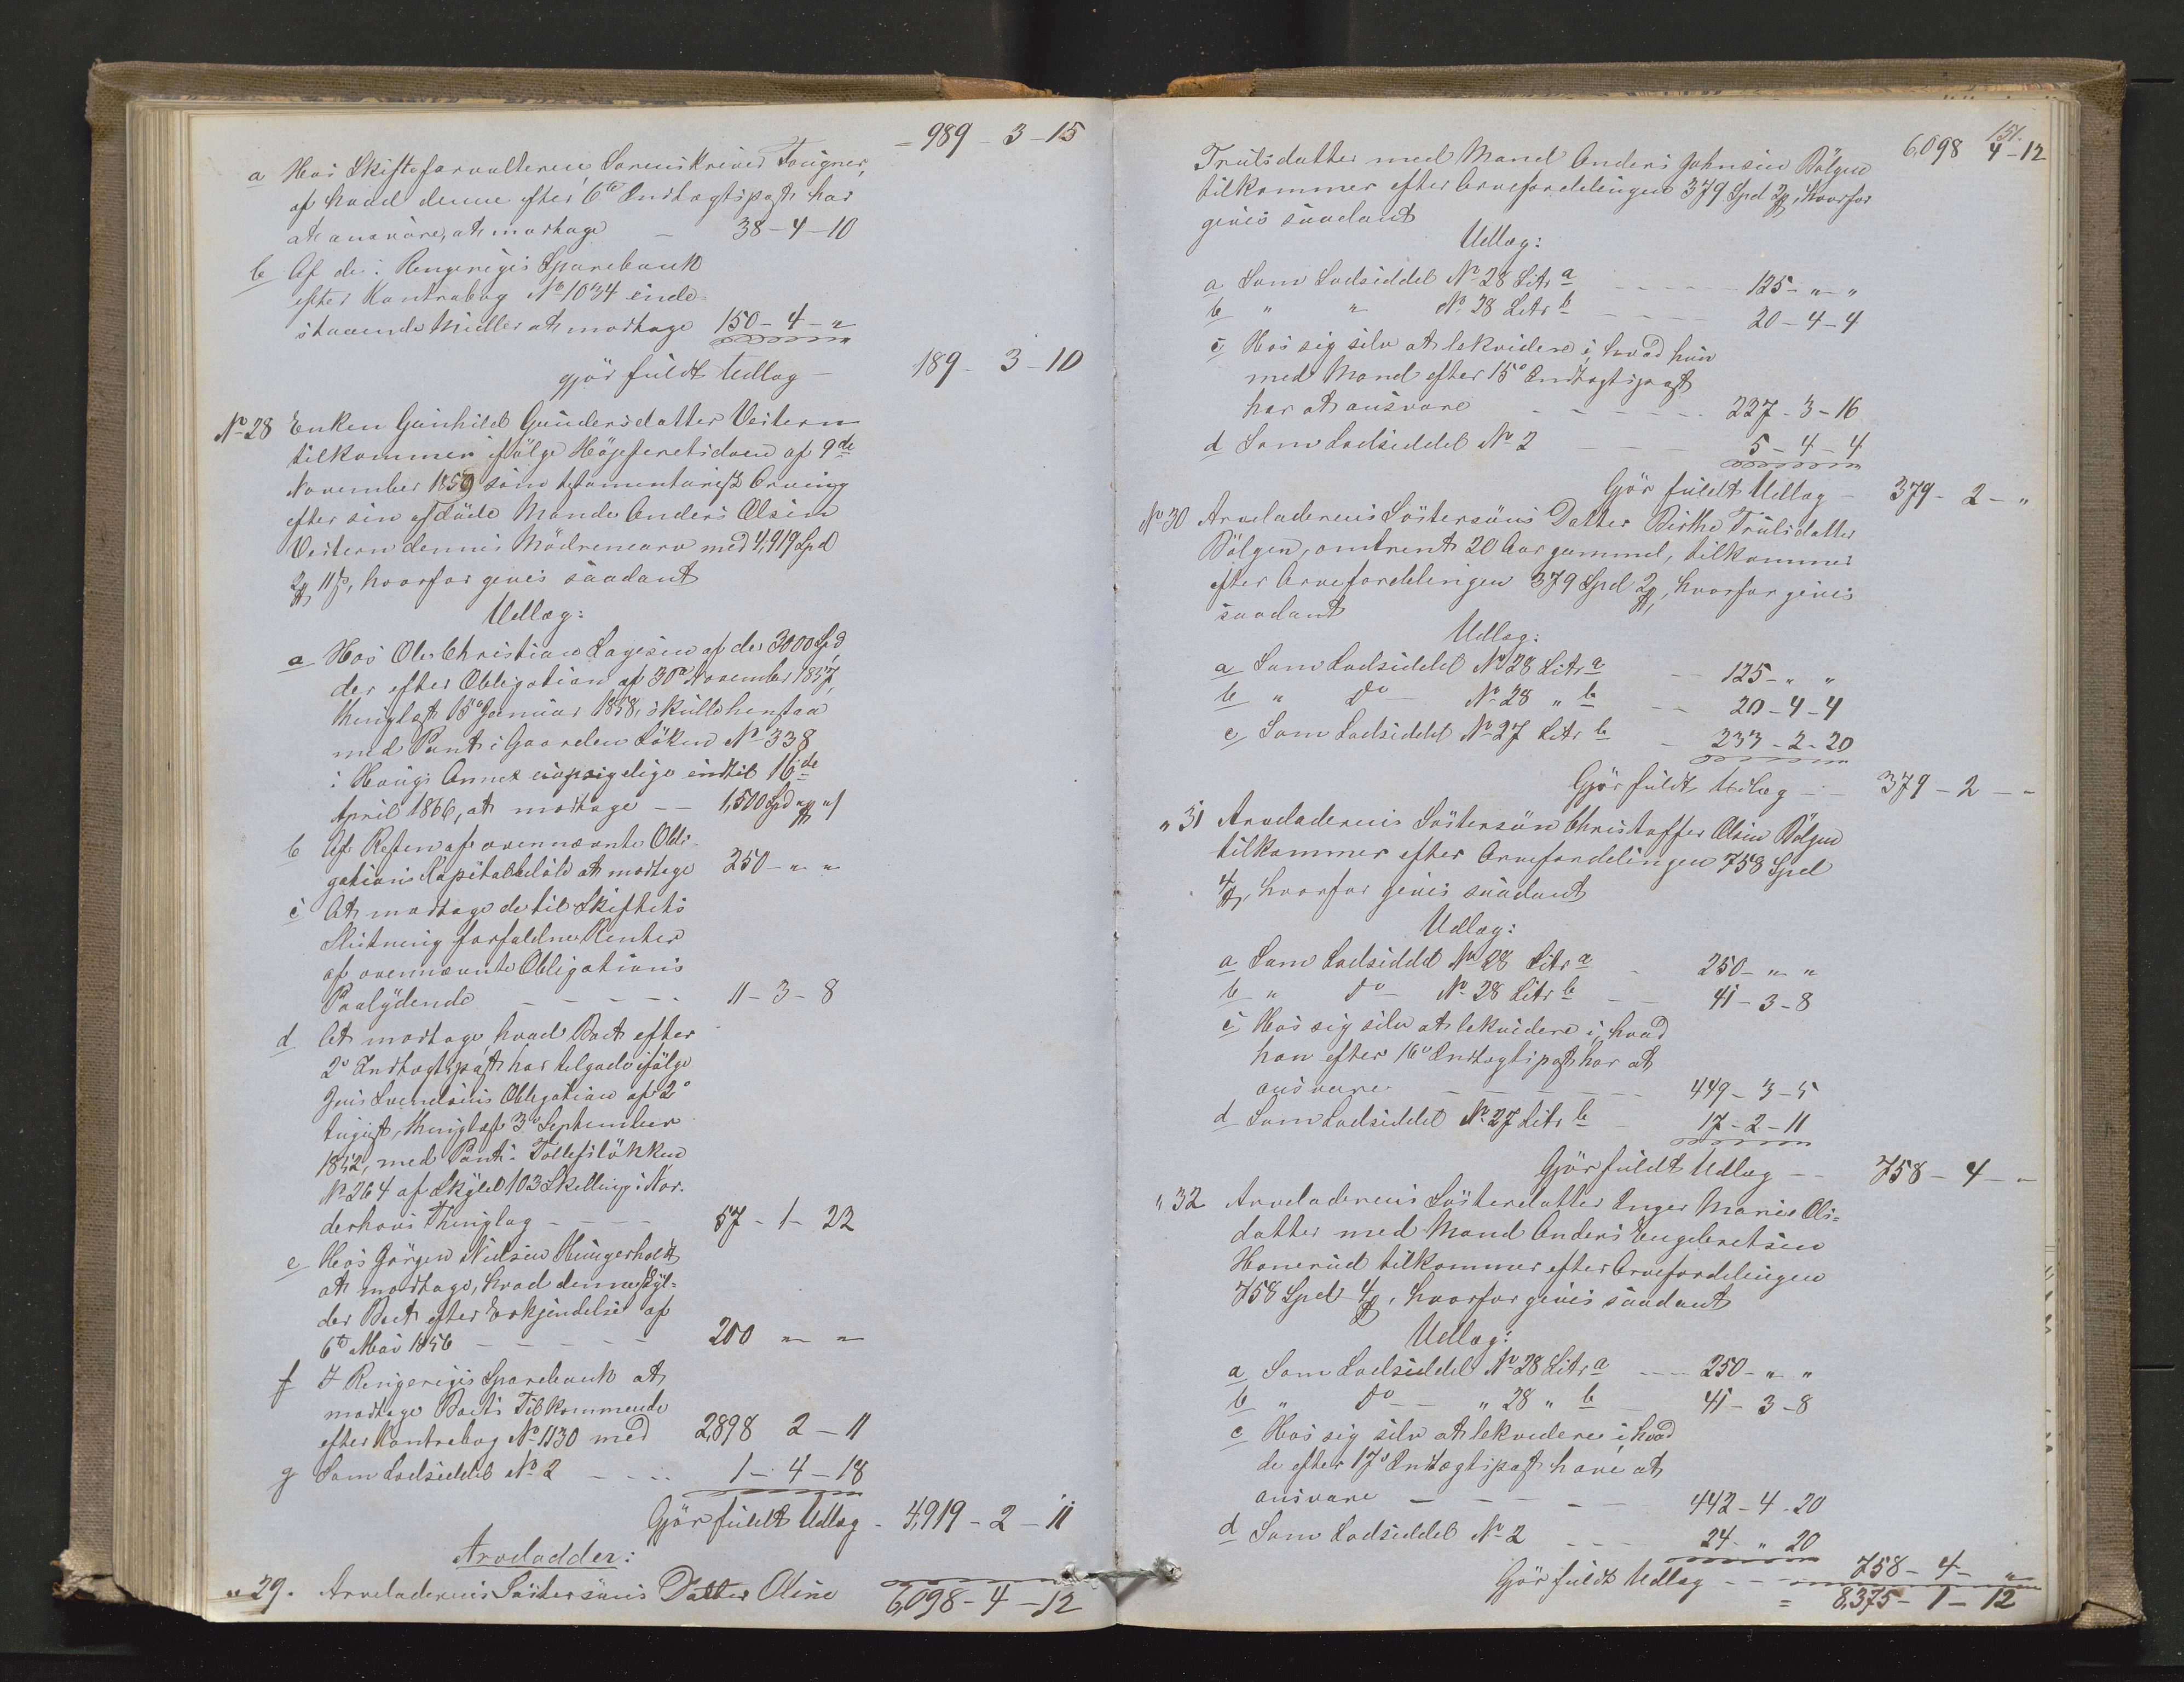 = 989 - 3 - 15
a Hos Skifteforvalteren Sorenskriver Fougner,
af hvad denne efter 6te Indtægtspost har
at ansvare, at modtage - 38 - 4 - 10
b Af de i Ringeriges Sparebank
efter Kontrabog No 1034 inde-
staaende Midler at modtage 150 - 4 - "
gjør fuldt Udlæg - 189 - 3 - 10
No 28 Enken Gunhild Gundersdatter Vestern
tilkommer ifølge Høiesteretsdom af 9de
November 1859 som testamentarisk Arving
efter sin afdøde Mand Anders Olsen
Vestern dennes Mødrenearv med 4,919 Spd
2 ₰ 11 ß, hvorfor gives saadant
Udlæg:
a Hos Ole Christian Lagesen af de 3000 Spd,
der efter Obligation af 30te November 1857,
thinglæst 15de Januar 1858, skulle henstaa
med Pant i Gaarden Løken No 338
i Hougs Annex uopsigelige indtil 16de
April 1866, at modtage - - 1,500 Spd " ₰ " ß
b Af Resten af ovennævnte Obli-
gations Kapitalbeløb at modtage 250 - " "
c At modtage de til Skiftets
Slutning forfaldne Renter
af ovennævnte Obligations
Paalydende - - - - - 11 - 3 - 8
d At modtage, hvad Boet efter
2o Indtægtspost har tilgode ifølge
Jens Svendsens Obligation af 2o
August, thinglæst 3o September
1852, med Pant i Tollefsløkken
No 264 af Skyld 103 Skilling i Nor-
derhovs Thinglag - - - - 57 - 1 - 22
e Hos Jørgen Nielsen Hungerholdt
at modtage, hvad denne skyl-
der Boet efter Erkjendelse af
6te Mai 1856 - - - - - 200 " "
f I Ringeriges Sparebank at
modtage Boets Tilkommende
efter Kontrabog No 1130 med 2,898 2 - 11
g Som Lodseddel No 2 - - - - 1 - 4 - 18
Gjør fuldt Udlæg - 4,919 - 2 - 11
Arvelodder:
" 29. Arveladerens Søstersøns Datter Oline 6,098 - 4 - 12
151.
6,098 4 - 12
Trulsdatter med Mand Anders Johnsen Bølgen
tilkommer efter Arvefordelingen 379 Spd 2 ₰, hvorfor
gives saadant
Udlæg:
a Som Lodseddel No 28 Litr a - - - - - 125 - " - "
b " " No 28 Litr b - - - - 20 - 4 - 4
c Hos sig selv at lekvidere i, hvad hun
med Mand efter 15o Indtægtspost
har at ansvare - - - - - - 227 - 3 - 16
d Som Lodseddel No 2 - - - 5 - 4 - 4
Gjør fuldt Udlæg - 379 - 2 - "
No 30 Arveladerens Søstersøns Datter Birthe Trulsdatter
Bølgen, omtrent 20 Aar gammel, tilkommer
efter Arvefordelingen 379 Spd 2 ₰, hvorfor gives
saadant
Udlæg:
a Som Lodseddel No 28 Litr a - - 125 - " "
b " Do - No 28 " b - - 20 - 4 - 4
c Som Lodseddel No 27 Litr b - 233 - 2 - 20
Gjør fuldt Udlæg - - 379 - 2 - -
" 31 Arveladerens Søstersøn Christoffer Olsen Bølgen
tilkommer efter Arvefordelingen 758 Spd
4 ₰, hvorfor gives saadant
Udlæg:
a Som Lodseddel No 28 Litr a - 250 - " "
b " Do - No 28 Litr b - - 41 - 3 - 8
c Hos sig selv at lekvidere i, hvad
han efter 16o Indtægtspost har at
ansvare - - - - - - 449 - 3 - 5
d Som Lodseddel No 27 Litr b - 17 - 2 - 11
Gjør fuldt Udlæg - - 758 - 4 - "
" 32 Arveladerens Søsterdatter Inger Marie Ols-
datter med Mand Anders Engebretsen
Honerud tilkommer efter Arvefordelingen
758 Spd 4 ₰, hvorfor gives saadant
Udlæg:
a Som Lodseddel No 28 Litr a - - - 250 - " "
b " Do - - " 28 " b - 41 - 3 - 8
c Hos sig selv at lekvidere i, hvad
de efter 17o Indtægtspost have at
ansvare - - - - - 442 - 4 - 20
d Som Lodseddel No 2 - - - 24 - " 20
Gjør fuldt Udlæg - - - 758 - 4 - "
= 8,375 - 1 - 12